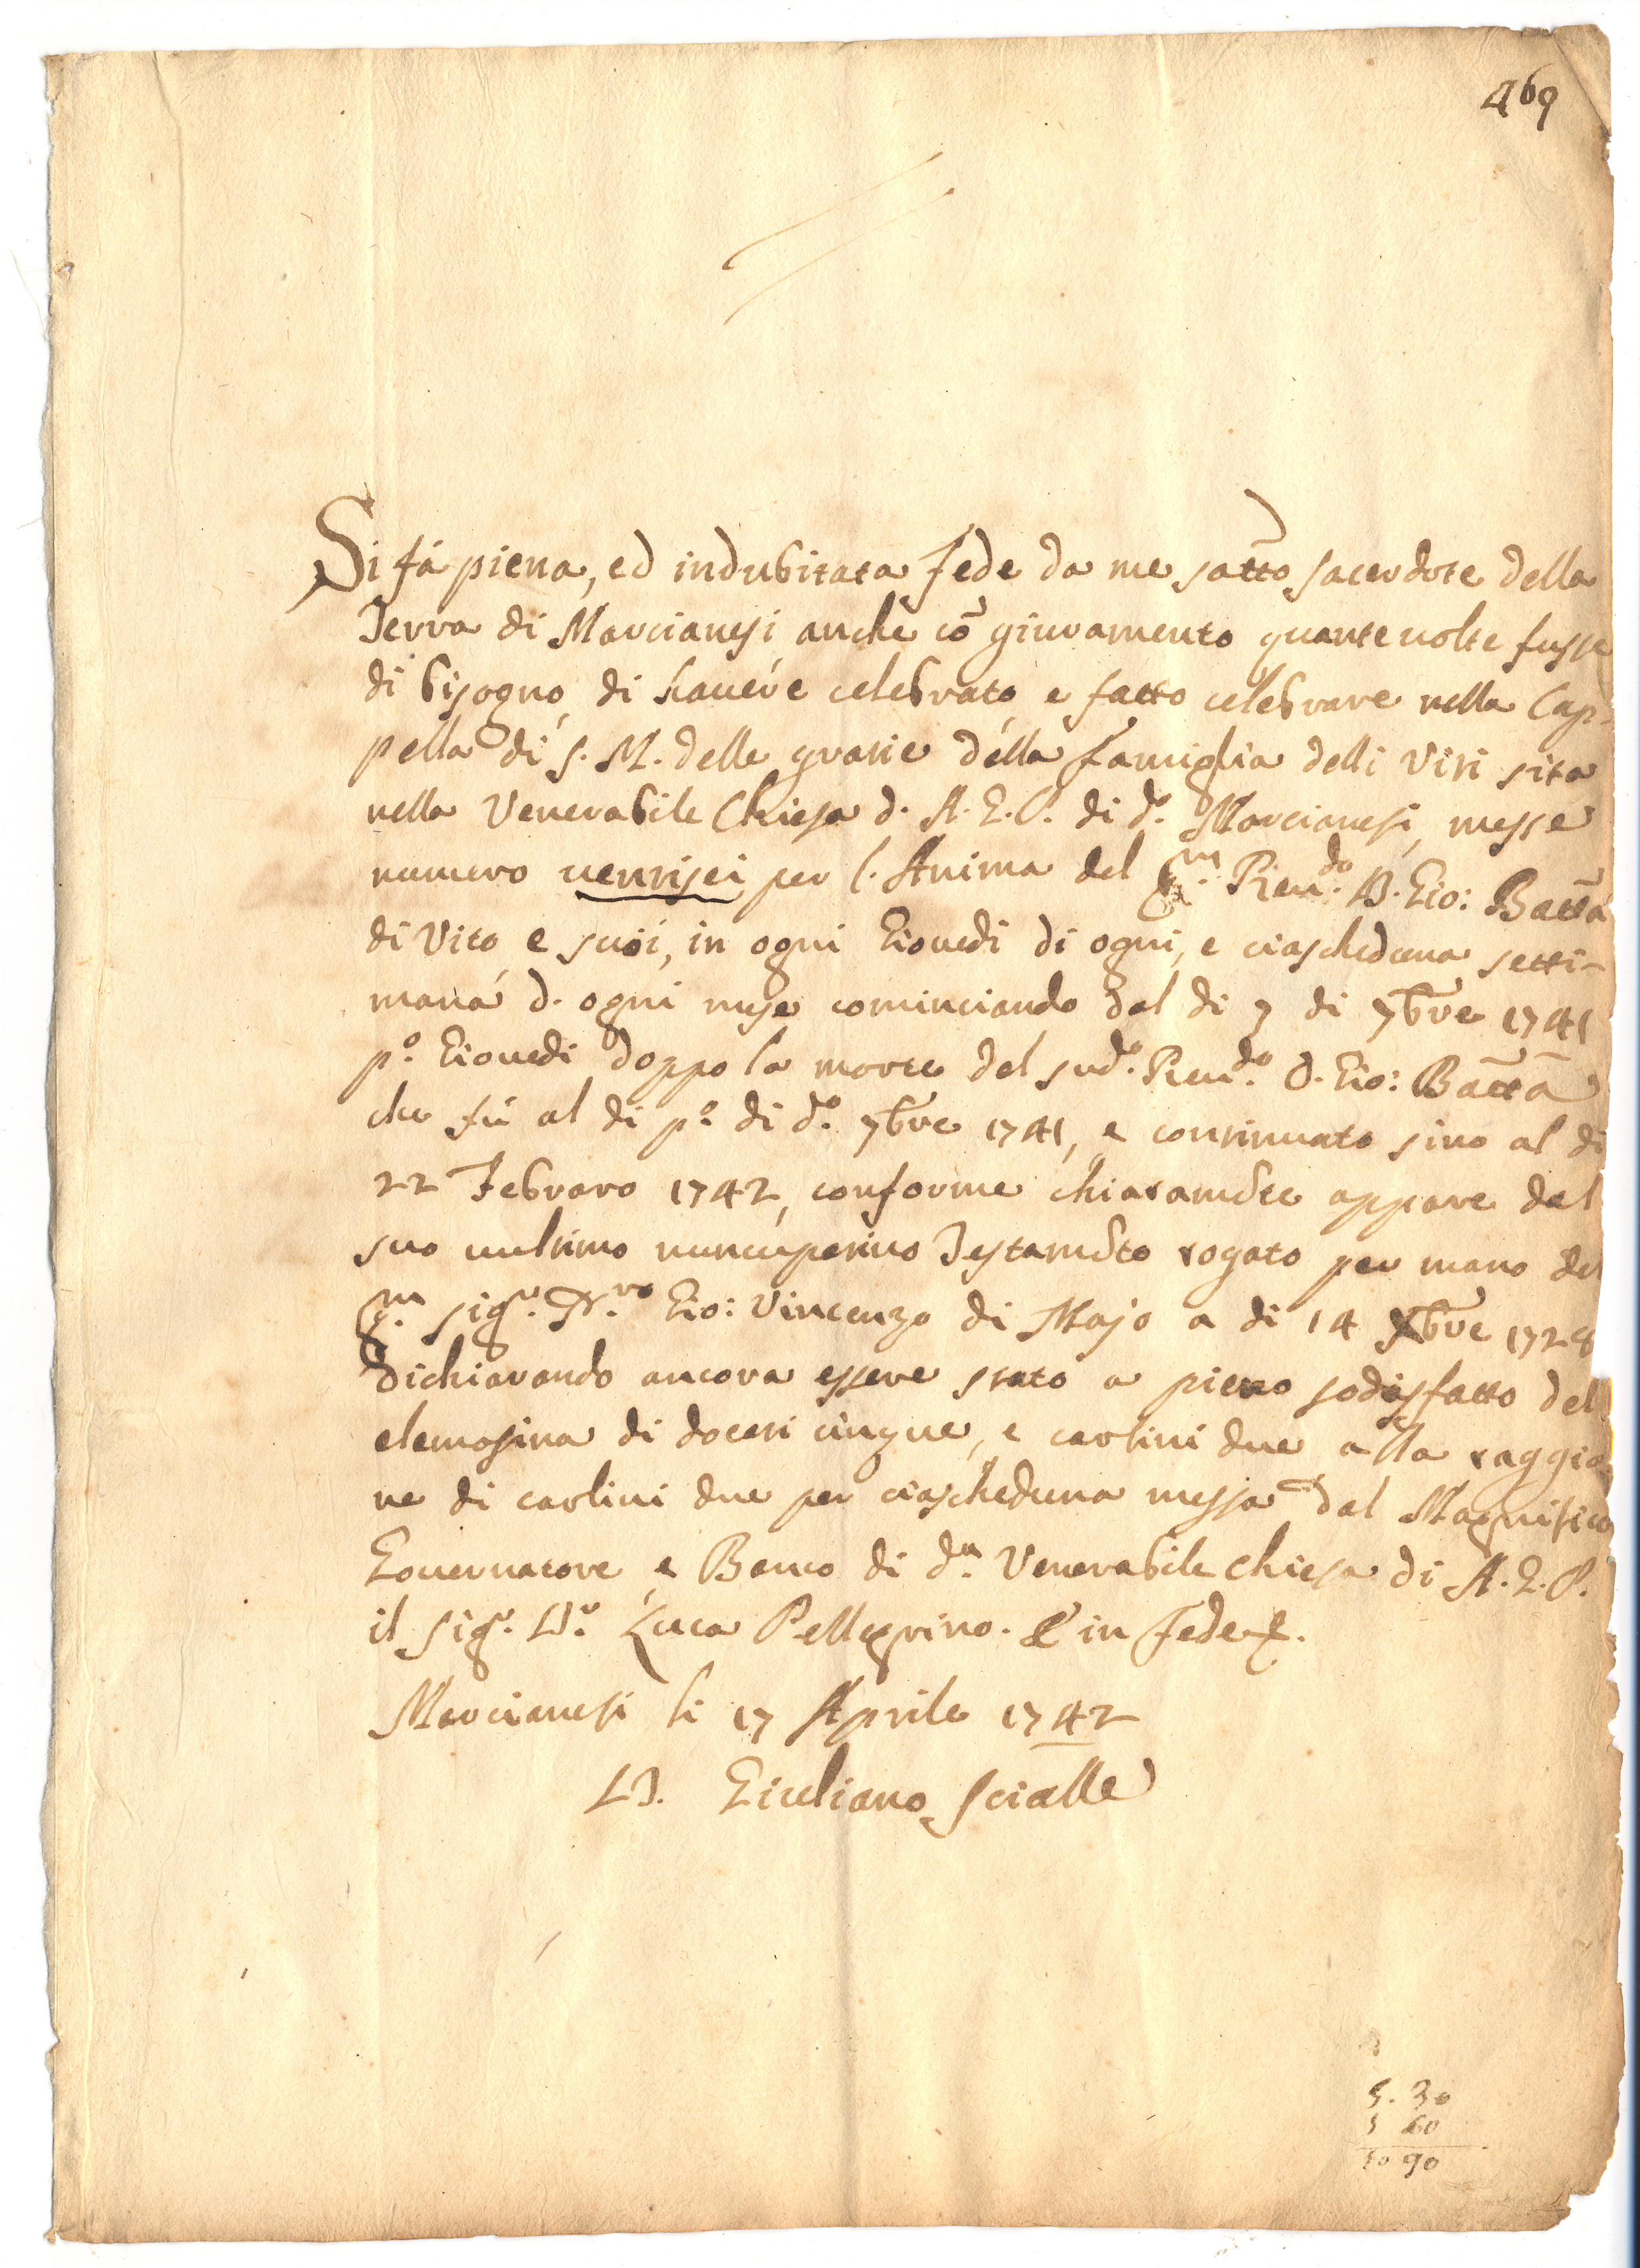 469
Si fà piena, ed indubitata fede da me sotto sacerdote della
Terra di Marcianesi anche cō giuramento quante uolte fusse
di bisogno, di hauere celebrato e fatto celebrare nella Cap-
pella di S. M. delle gratie della famiglia delli Viti sita
nella Venerabile Chiesa d. A. G. P. di d.º Marcianesi, messe
numero uentisei per l. Anima del q.m Reu.do D. Gio: Batta
di Vito e suoi, in ogni Giouedi di ogni, e ciascheduna setti-
mana d. ogni mese cominciando dal di 7 di 7bre 1741
p.º Giouedi doppo la morte del sud.º Reu.do D. Gio: Batta
che fù al di p.º di d.º 7bre 1741, e continuato sino al di
22 Febraro 1742, conforme chiaramēte appare dal
suo uultimo nuncupatiuo Testamēto rogato per mano del
q.m sig.r N.ro Gio: Vincenzo di Majo a di 14 Xbre 1728
dichiarando ancora essere stato a pieno sodisfatto del
elemosina di docati cinque, e carlini due alla raggio
ne di carlini due per ciascheduna messa dal Magnifico
Gouernatore e Banco di d.a Venerabile Chiesa di A. G. P.
il Sig.r D.r Luca Pellegrino. E in fede &.
Marcianesi li 17 Aprile 1742
D. Giuliano Scialle
5. 30
5 60
10 90